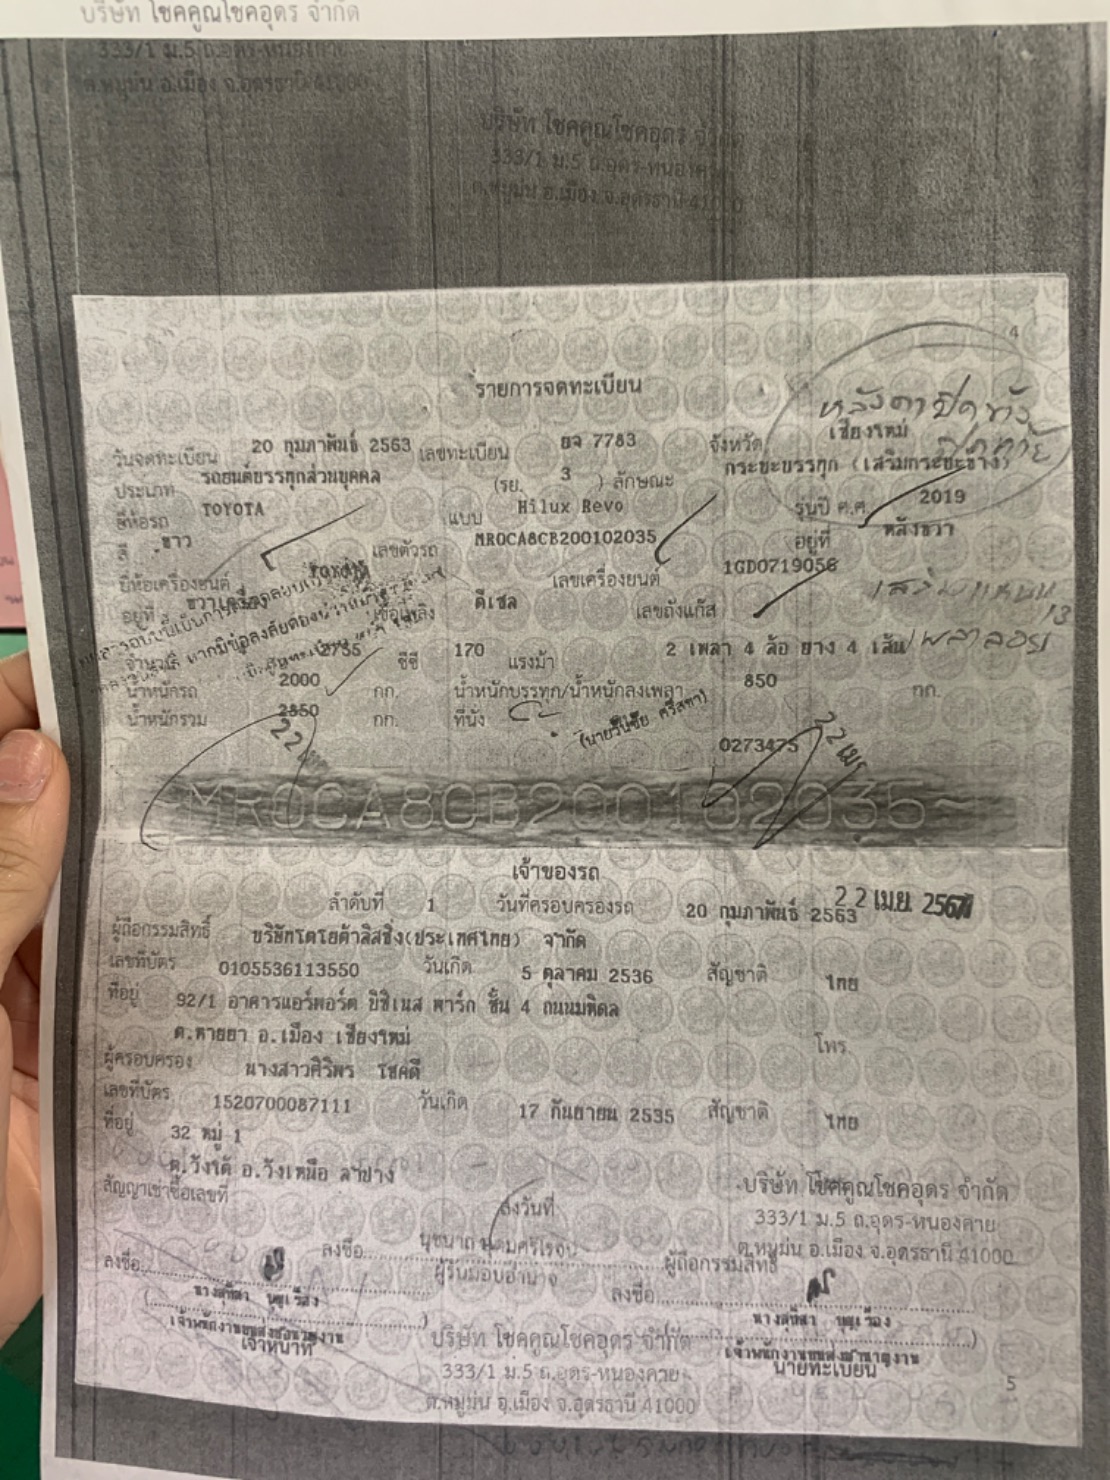 บริษัท โชคคูณโชคอุดร จำกัด
333/1 ม.5 ถ.อุดร-หนองคาย
ต.หมูม่น อ.เมือง จ.อุดรธานี 41000
บริษัท โชคคูณโชคอุดร จำกัด
333/1 ม.5 ถ.อุดร-หนองคาย
ต.หมูม่น อ.เมือง จ.อุดรธานี 41000
4
รายการจดทะเบียน
หลังคาปิดข้าง
ปิดท้าย
วันจดทะเบียน 20 กุมภาพันธ์ 2563 เลขทะเบียน ยจ 7783 จังหวัด เชียงใหม่
ประเภท รถยนต์บรรทุกส่วนบุคคล (รย. 3 ) ลักษณะ กระบะบรรทุก (เสริมกระบะข้าง)
ยี่ห้อรถ TOYOTA แบบ Hilux Revo รุ่นปี ค.ศ. 2019
สี ขาว เลขตัวรถ MR0CA8CB200102035 อยู่ที่ หลังขวา
ยี่ห้อเครื่องยนต์ TOYOTA เลขเครื่องยนต์ 1GD0719056
อยู่ที่ ขวาเครื่อง เชื้อเพลิง ดีเซล เลขถังแก๊ส
เสริมแหนบ
จำนวน 2755 ซีซี 170 แรงม้า 2 เพลา 4 ล้อ ยาง 4 เส้น เพลาลอย
น้ำหนักรถ 2000 กก. น้ำหนักบรรทุก/น้ำหนักลงเพลา 850 กก.
น้ำหนักรวม 2850 กก. ที่นั่ง
(นายวันชัย ศรีสขา)
0273475
22 เมย
MR0CA8CB200102035
เจ้าของรถ
ลำดับที่ 1 วันที่ครอบครองรถ 20 กุมภาพันธ์ 2563 22 เม.ย. 2567
ผู้ถือกรรมสิทธิ์ บริษัทโตโยต้าลิสซิ่ง(ประเทศไทย) จำกัด
เลขที่บัตร 0105536113550 วันเกิด 5 ตุลาคม 2536 สัญชาติ ไทย
ที่อยู่ 92/1 อาคารแอร์พอร์ต บิซิเนส พาร์ก ชั้น 4 ถนนมหิดล
ต.หายยา อ.เมือง เชียงใหม่ โทร
ผู้ครอบครอง นางสาวศิริพร โชคดี
เลขที่บัตร 1520700087111 วันเกิด 17 กันยายน 2535 สัญชาติ ไทย
ที่อยู่ 32 หมู่ 1
ต.วังใต้ อ.วังเหนือ ลำปาง
สัญญาเช่าซื้อเลขที่ ลงวันที่
บริษัท โชคคูณโชคอุดร จำกัด
333/1 ม.5 ถ.อุดร-หนองคาย
ต.หมูม่น อ.เมือง จ.อุดรธานี 41000
ลงชื่อ ผู้ถือกรรมสิทธิ์
ผู้รับมอบอำนาจ
ลงชื่อ ลงชื่อ
นางสุทิสา บุญเรือง นางสุทิสา บุญเรือง
เจ้าพนักงานขนส่งชำนาญงาน เจ้าพนักงานขนส่งชำนาญงาน
เจ้าหน้าที่ นายทะเบียน
บริษัท โชคคูณโชคอุดร จำกัด
333/1 ม.5 ถ.อุดร-หนองคาย
ต.หมูม่น อ.เมือง จ.อุดรธานี 41000
5